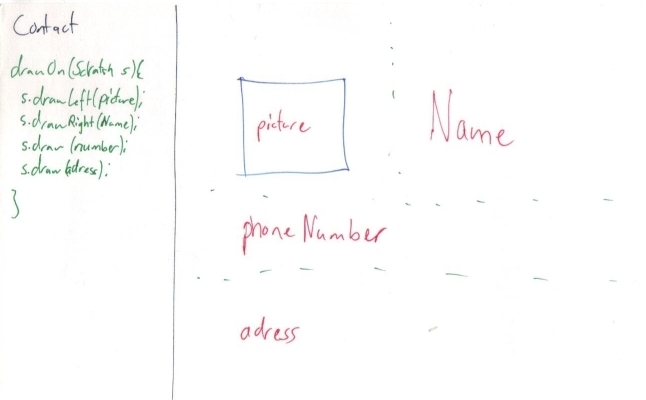 Contact
drawOn(Scratch s){
s.drawLeft(picture);
s.drawRight(Name);
s.draw(number);
s.draw(adress);
}
picture
Name
phoneNumber
adress